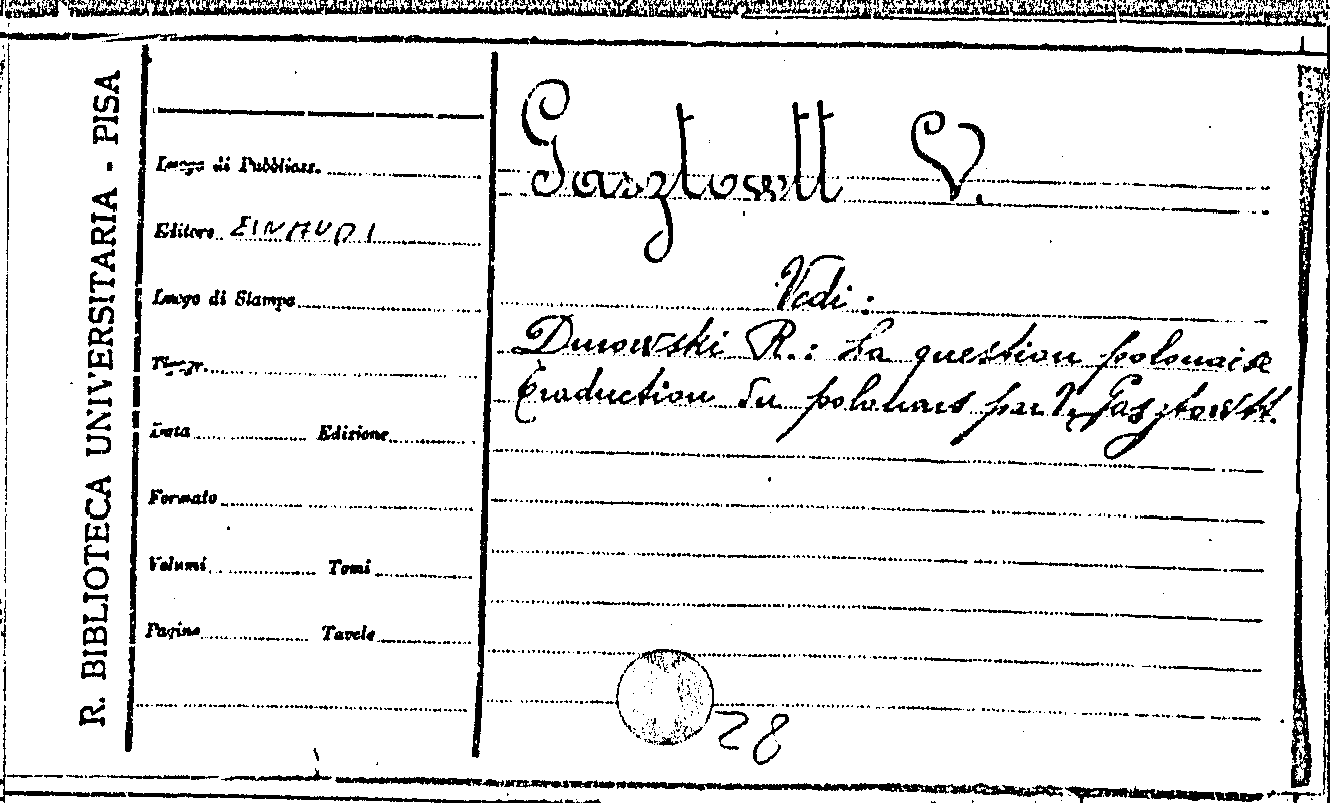 R. BIBLIOTECA UNIVERSITARIA - PISA
Luogo di Pubblicaz.
Editore EINAUDI
Luogo di Stampa
Tipogr.
Data Edizione
Formato
Volumi Tomi
Pagine Tavole
Gasztowtt V.
Vedi:
Dmowski R.: La question polonaise
Traduction du polonais par V. Gasztowtt.
28